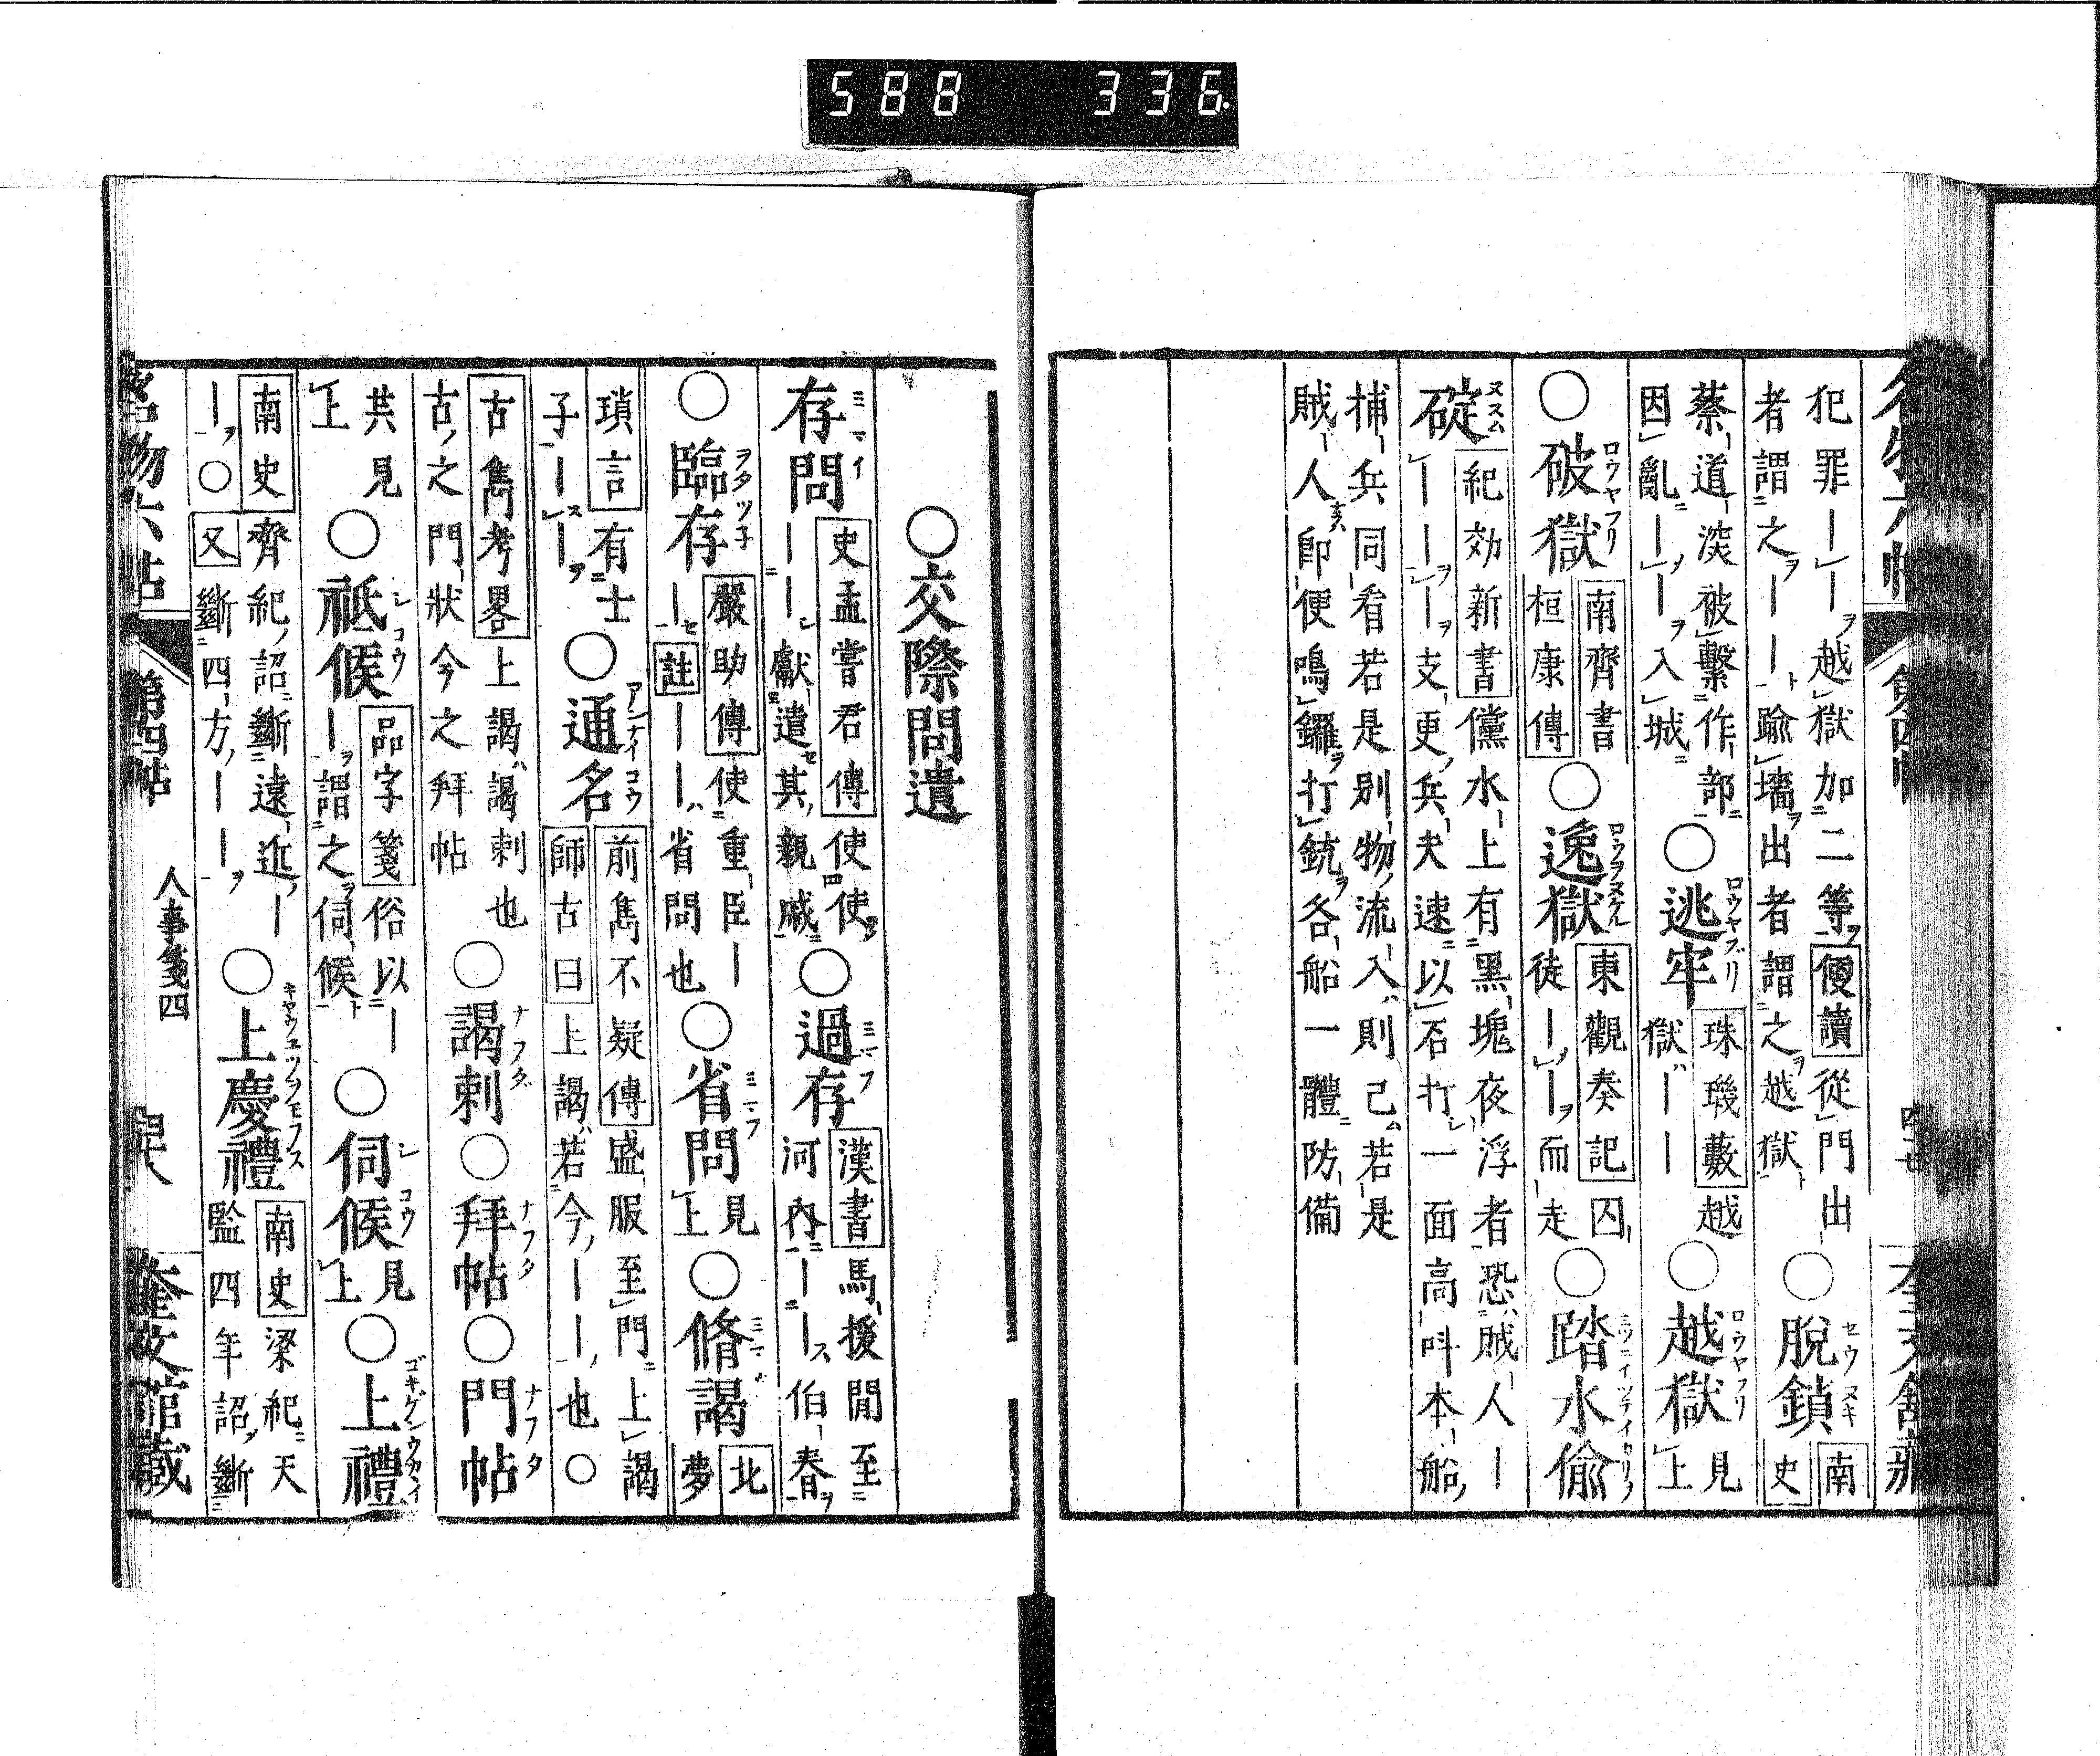 588 336
犯罪――越獄加二等便讀從門出者謂之――踰墻出者謂之越獄○脫鎖南史
蔡道淡被繫作部因亂――入城○逃牢珠璣藪越獄――○越獄見上
○破獄南齊書桓康傳○逸獄東觀奏記囚徒――而走○踏水偷
碇紀効新書儻水上有黑塊夜浮者恐賊人――――支更兵夫速以石打一面高呌本船
捕兵同看若是別物流入則己若是賊人卽便鳴鑼打銃各船一體防備
○交際問遺
存問史孟嘗君傳使使――獻遣其親戚○過存漢書馬援閒至河內――伯春
○臨存嚴助傳使重臣――註――省問也○省問見上○脩謁北夢
瑣言有士子――○通名前雋不疑傳盛服至門上謁師古曰上謁若今――也○
古雋考畧上謁謁刺也古之門狀今之拜帖○謁刺○拜帖○門帖
共見上○祗候品字箋俗以――謂之伺候○伺候見上○上禮
南史齊紀詔斷遠近――○又斷四方――○上慶禮南史梁紀天監四年詔斷
名物六帖 第四帖 人事箋四 奎文館藏